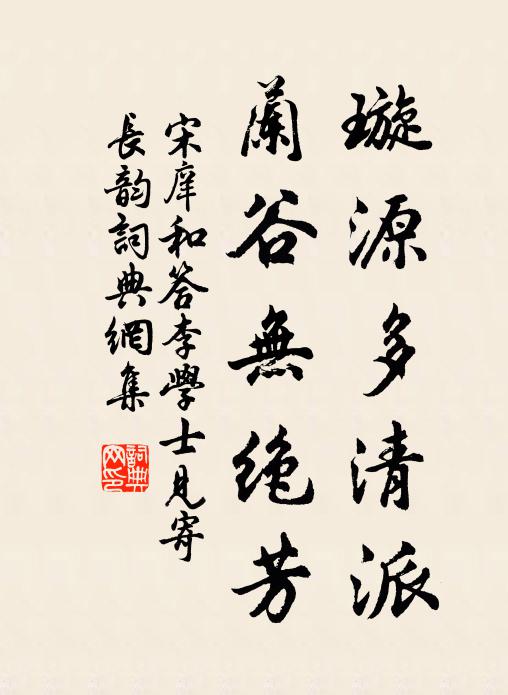 璇源多清派
蘭谷無絶芳
宋庠和答李學士見寄
長韵詞典網集
詞典
网印